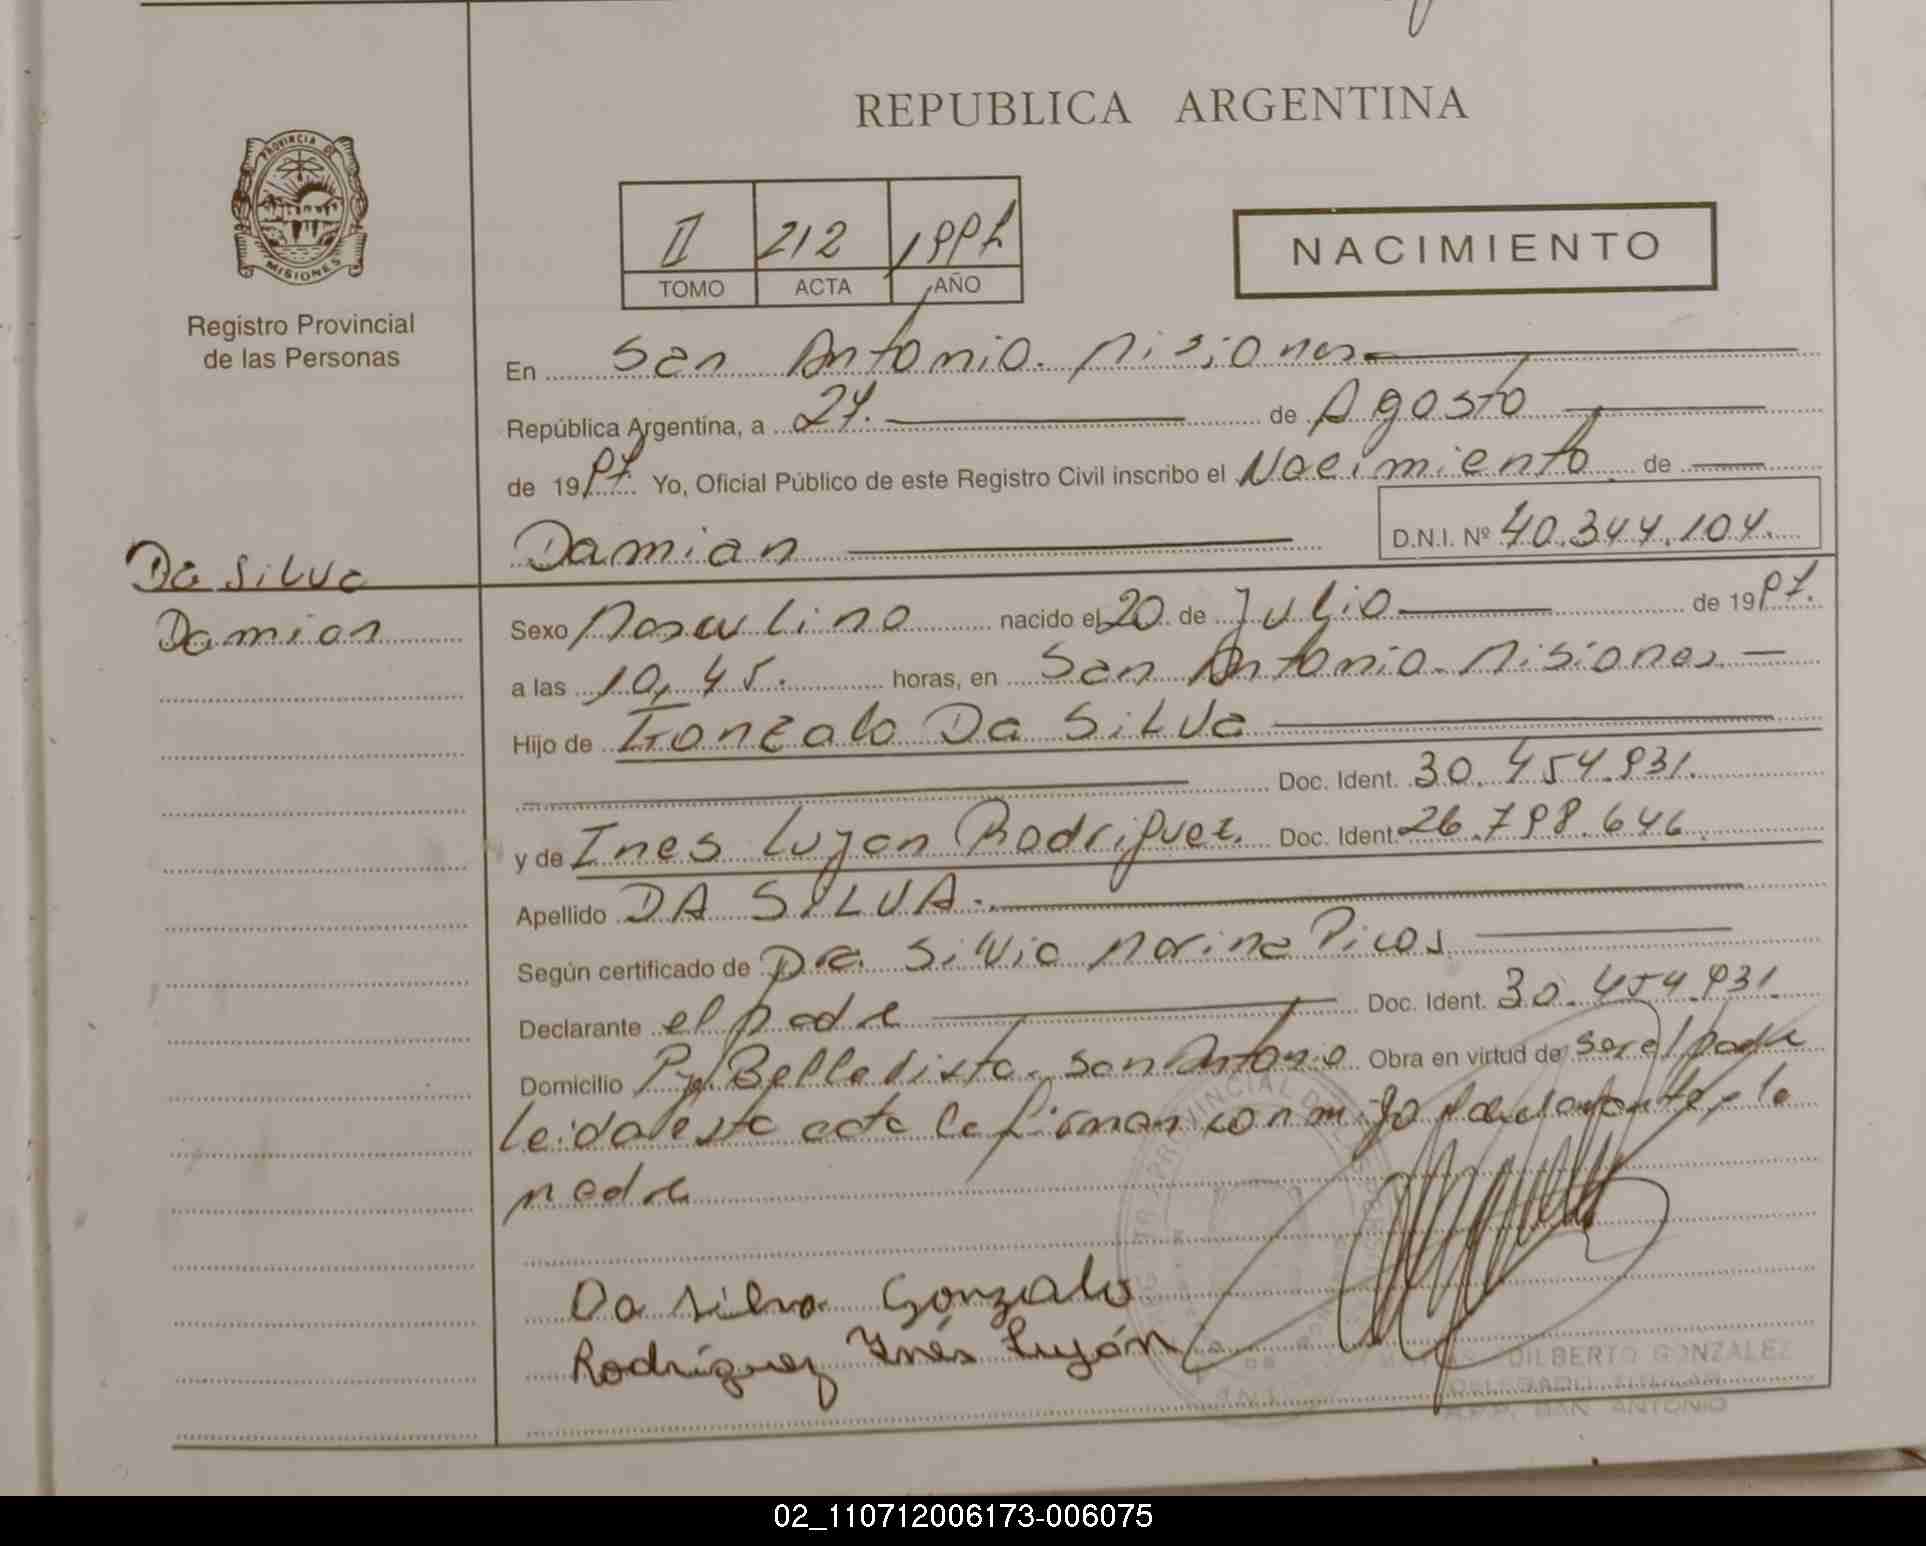 REPUBLICA ARGENTINA
PROVINCIA DE
MISIONES
Registro Provincial
de las Personas
II 212
TOMO ACTA AÑO
NACIMIENTO
En San Antonio. Misiones
República Argentina, a 24. de Agosto
de 1997. Yo, Oficial Público de este Registro Civil inscribo el Nacimiento de
Damian D.N.I. Nº 40.344.104.
Da Silva
Damian
Sexo Masculino nacido el 20 de Julio de 1997.
a las 10,45. horas, en San Antonio. Misiones
Hijo de Gonzalo Da Silva
Doc. Ident. 30.454.931.
y de Ines Lujan Rodriguez. Doc. Ident. 26.798.646
Apellido DA SILVA.
Según certificado de Dra. Silvia Marina Picos
Declarante el padre Doc. Ident. 30.454.931.
Domicilio Pje Bella Vista. San Antonio Obra en virtud de ser el padre
Leida esta acta la firman conmigo el declarante y la
madre
Da Silva Gonzalo
Rodríguez Inés Luján
DILBERTO GONZALEZ
DELEGADO TITULAR
R.P.P. SAN ANTONIO
02_110712006173-006075